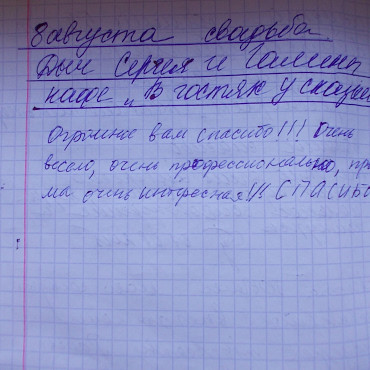 8 августа свадьба
Дыч Сергея и Галины
кафе "В гостях у сказки
Огромное вам спасибо!!! Очень
весело, очень профессионально, про
ма очень интересная!!! СПАСИБО